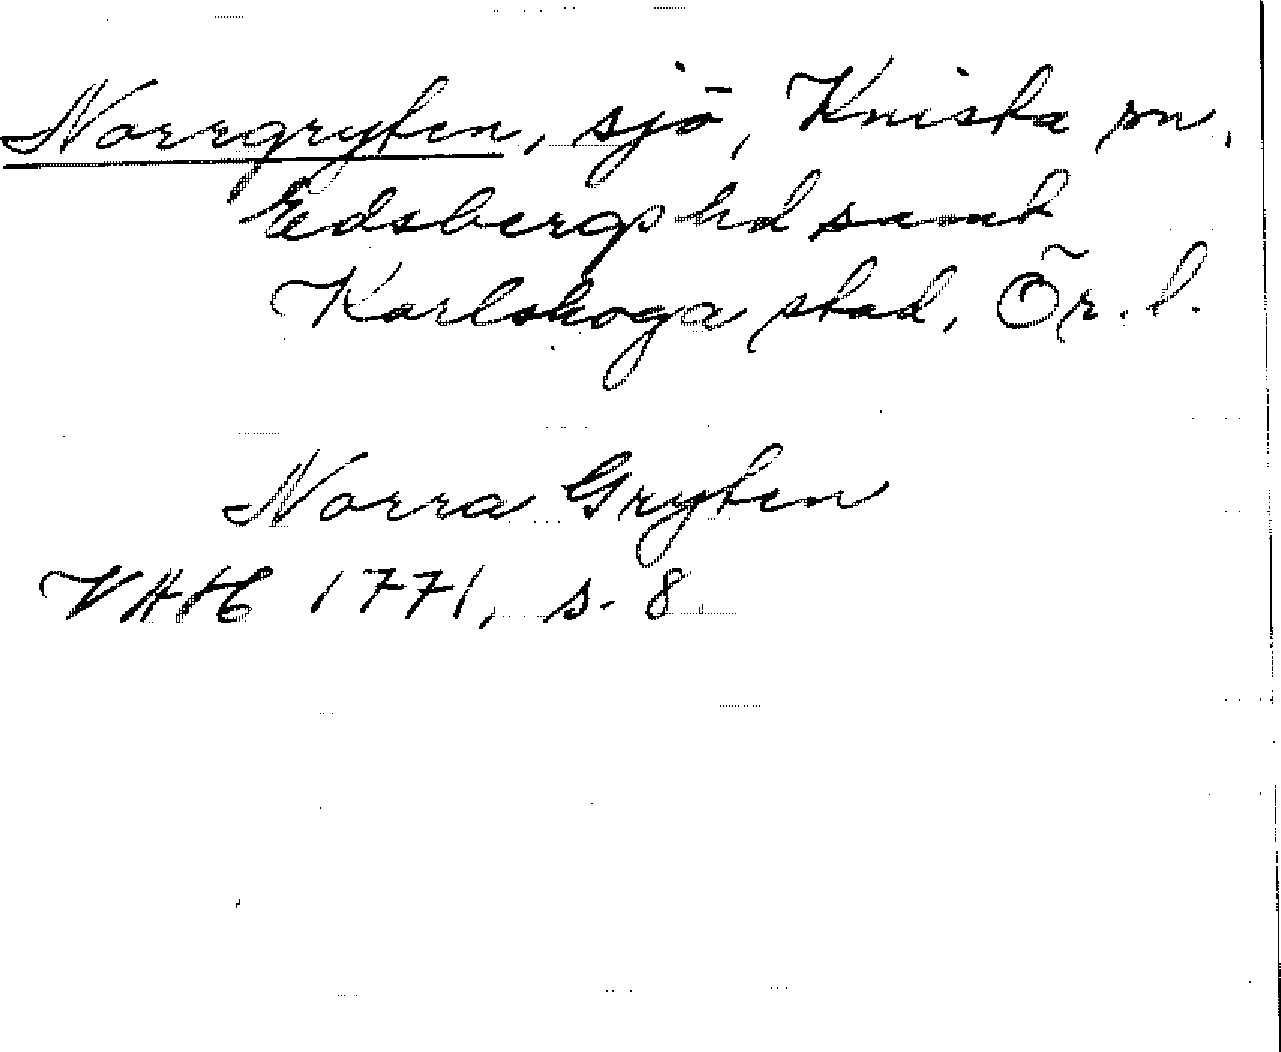 Norrgryten, sjö, Knista sn,
Edsbergs hd samt
Karlskoga stad, Ör. l.
Norra Gryten
VAH 1771, s. 8.